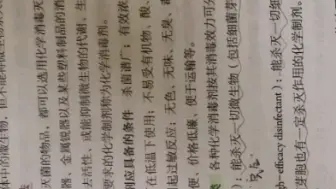 灭菌的物品，都可以选用化学消毒灭
器、金属锐器以及某些塑料制品的消
去活性，或能抑制微生物的代谢、生
要求的化学制剂称为化学消毒剂。
剂应具备的条件 杀菌谱广；有效浓
在低温下使用；不易受有机物、酸、
起过敏反应；无色、无味、无臭、毒
更、价格低廉，便于运输等。
各种化学消毒剂按其消毒效力可分
：能杀灭一切微生物（包括细菌芽
gh-efficacy disinfectant)：能杀灭一切细
芽胞也有一定杀灭作用的化学制剂。